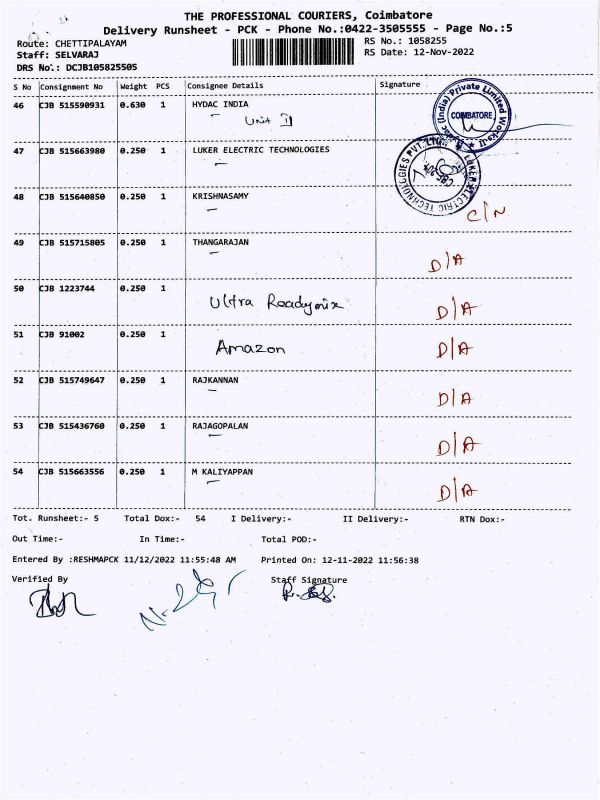 THE PROFESSIONAL COURIERS, Coimbatore
Delivery Runsheet - PCK - Phone No.:0422-3505555 - Page No.:5
Route: CHETTIPALAYAM RS No.: 1058255
Staff: SELVARAJ RS Date: 12-Nov-2022
DRS No.: DCJB105825505
S No Consignment No Weight PCS Consignee Details Signature
46 CJB 515590931 0.630 1 HYDAC INDIA
Unit II
(India) Private Limited Works-II
COIMBATORE
47 CJB 515663980 0.250 1 LUKER ELECTRIC TECHNOLOGIES
LUKER ELECTRIC TECHNOLOGIES PVT. LTD.
48 CJB 515640850 0.250 1 KRISHNASAMY C/N
49 CJB 515715805 0.250 1 THANGARAJAN D/A
50 CJB 1223744 0.250 1 Ultra Readymix D/A
51 CJB 91002 0.250 1 Amazon D/A
52 CJB 515749647 0.250 1 RAJKANNAN D/A
53 CJB 515436760 0.250 1 RAJAGOPALAN D/A
54 CJB 515663556 0.250 1 M KALIYAPPAN D/A
Tot. Runsheet:- 5 Total Dox:- 54 I Delivery:- II Delivery:- RTN Dox:-
Out Time:- In Time:- Total POD:-
Entered By :RESHMAPCK 11/12/2022 11:55:48 AM Printed On: 12-11-2022 11:56:38
Verified By Staff Signature